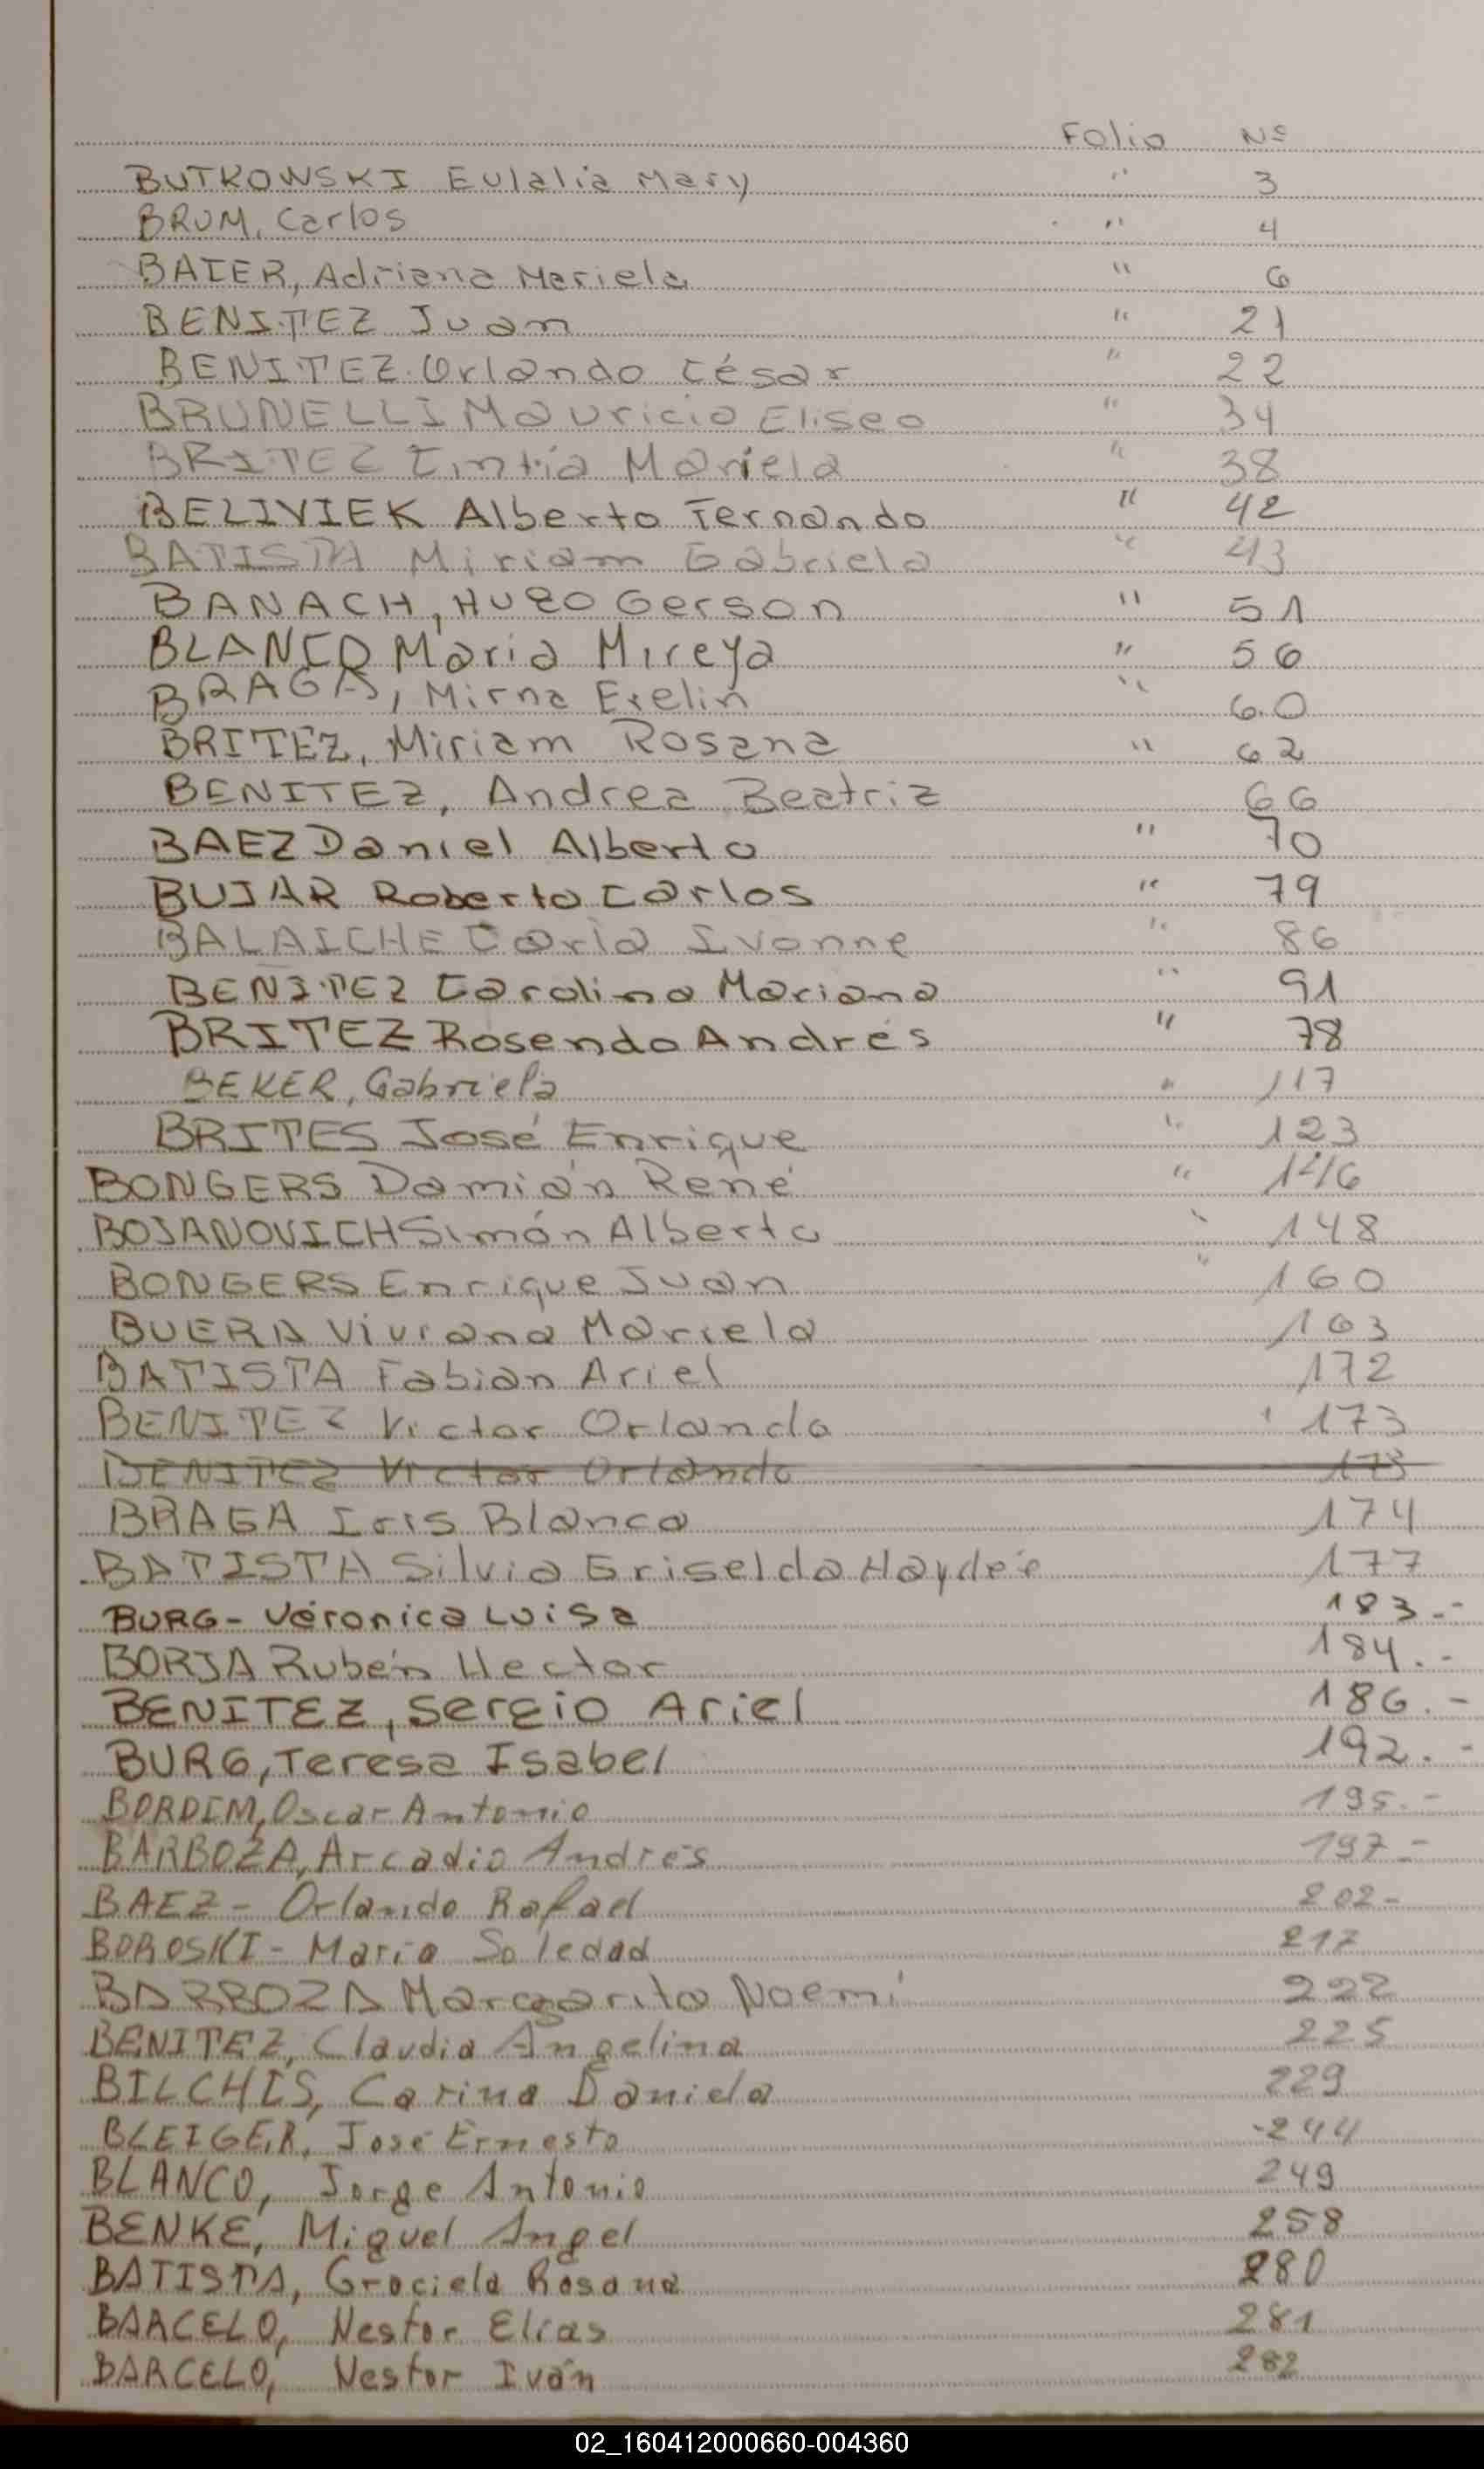 Folio Nº
BUTKOWSKI Eulalia Mary " 3
BRUM, Carlos " 4
BAIER, Adriana Mariela " 6
BENITEZ Juan " 21
BENITEZ Orlando César " 22
BRUNELLI Mauricio Eliseo " 34
BRITEZ Cintia Mariela " 38
BELIVIEK Alberto Fernando " 42
BATISTA Miriam Gabriela " 43
BANACH, Hugo Gerson " 51
BLANCO Maria Mireya " 56
BRAGA, Mirna Evelin " 60
BRITEZ, Miriam Rosana " 62
BENITEZ, Andrea Beatriz 66
BAEZ Daniel Alberto " 70
BUJAR Roberto Carlos " 79
BALAICHE Carla Ivonne " 86
BENITEZ Carolina Mariana " 91
BRITEZ Rosendo Andrés " 78
BEKER, Gabriela " 117
BRITES José Enrique " 123
BONGERS Damián René "
BOJANOVICH Simón Alberto " 148
BONGERS Enrique Juan " 160
BUERA Viviana Mariela 163
BATISTA Fabian Ariel 172
BENITEZ Victor Orlando ' 173
BENITEZ Victor Orlando 173
BRAGA Iris Blanca 174
BATISTA Silvia Griselda Haydée 177
BURG - Véronica Luisa 183.-
BORJA Rubén Hector 184.-
BENITEZ, Sergio Ariel 186.-
BURG, Teresa Isabel 192.-
BORDEM, Oscar Antonio 195.-
BARBOZA, Arcadio Andrés 197-
BAEZ - Orlando Rafael 202-
BOROSKI - Maria Soledad 217
BARBOZA Margarita Noemí 222
BENITEZ, Claudia Angelina 225
BILCHIS, Carina Daniela 229
BLEIGER, José Ernesto 244
BLANCO, Jorge Antonio 249
BENKE, Miguel Angel 258
BATISTA, Graciela Rosana 280
BARCELO, Nestor Elias 281
BARCELO, Nestor Iván 282
02_160412000660-004360